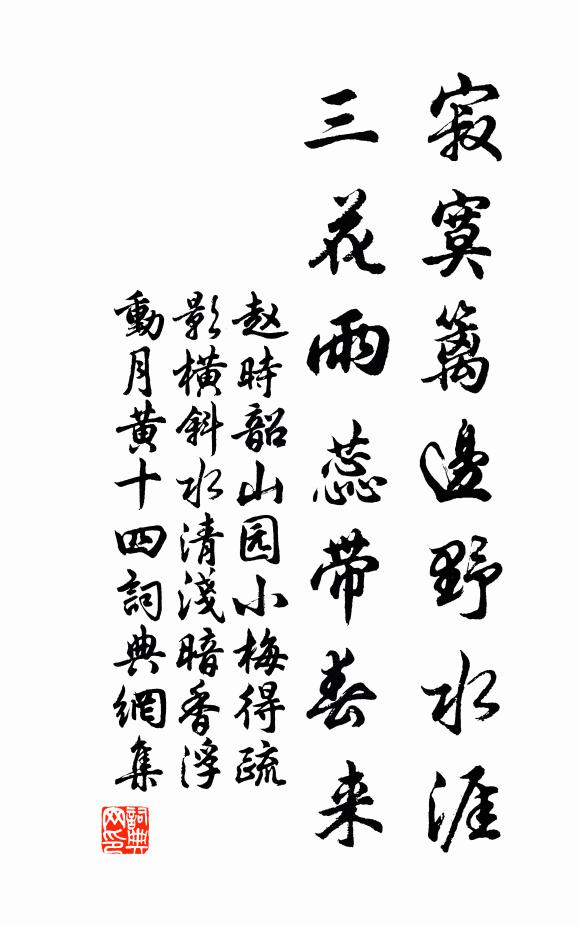 寂寞篱邊野水涯
三花雨蕊带春来
赵時韶山园小梅得疏
影橫斜水清淺暗香浮
動月黃十四詞典網集
詞典网印